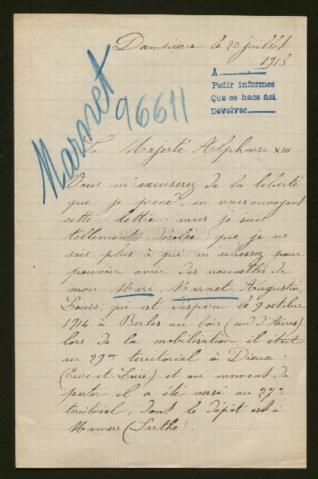 Dampierre le 20 juillet
1915
A
Pedir informes
Que se hace asi
Devolver
Marnet
96611
Sa Majesté Alphonse XIII
Vous m'excuserez de la liberté
que je prend, en vous envoyant
cette lettre: mais je suis
tellement désolée que je ne
sais plus à qui m'adresser pour
pouvoir avoir des nouvelles de
mon Mari Marnet, Augustin,
Louis, qui est disparu le 9 octobre
1914 à Berles au bois (sud d'Arras)
lors de la mobilisation il était
au 29me territorial à Dreux
(Eure-et-Loire) et au moment de
partir il a été versé au 27me
territorial, dont le dépôt est à
Mamers (Sarthe).